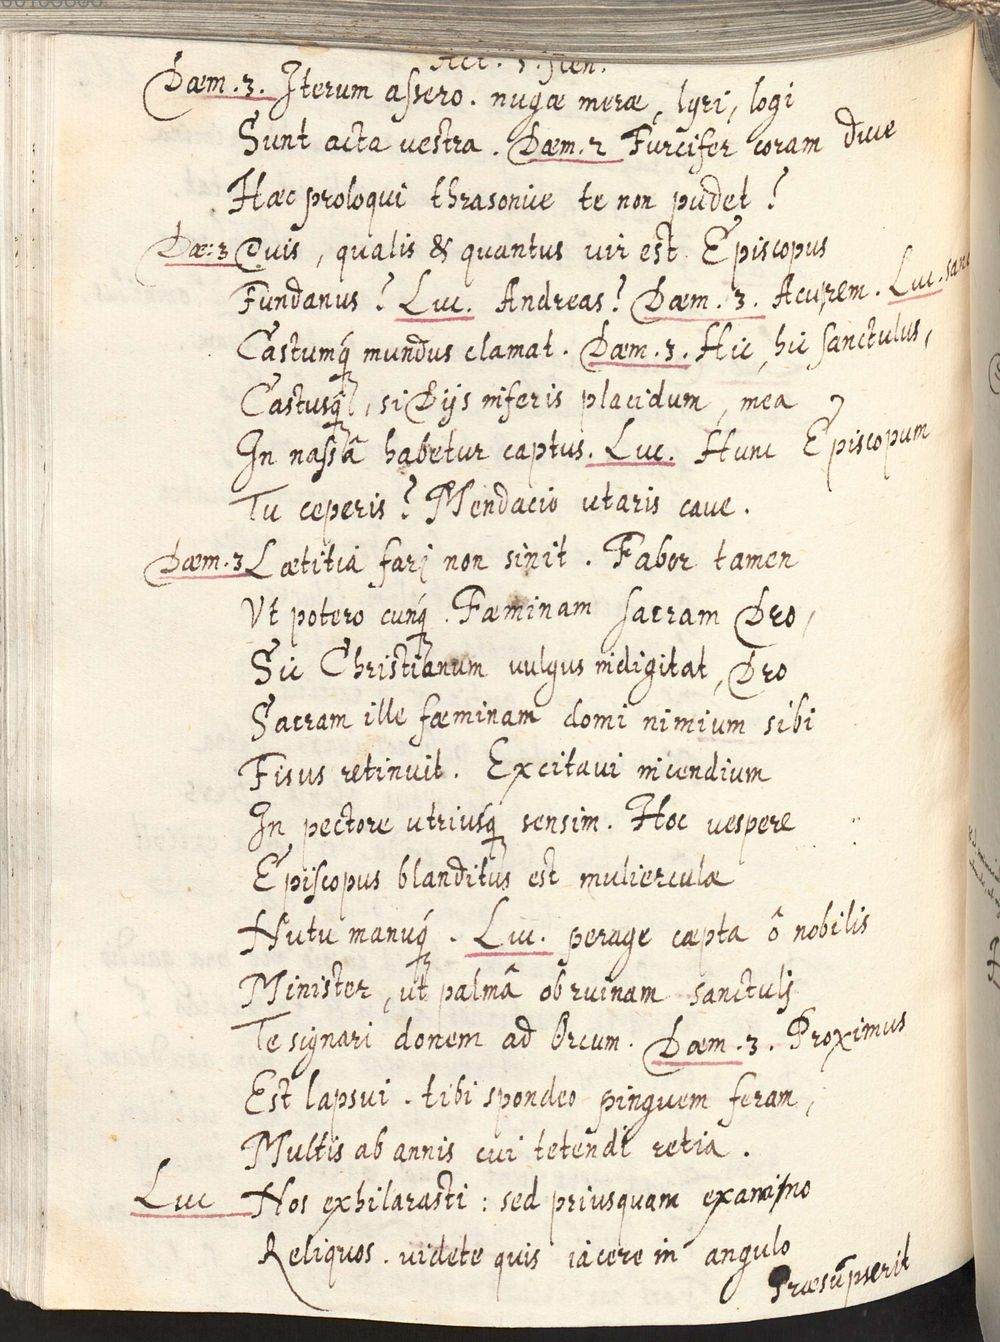 Act. 5. scen.
Dæm. 3. Iterum assero. nugæ meræ, lyri, logi
Sunt acta vestra. Dæm. 2 Furcifer coram duce
Hæc proloqui thrasonice te non pudet?
Dæ: 3 Quis, qualis & quantus vir est Episcopus
Fundanus? Luc. Andreas? Dæm. 3. Acupem. Luc. sanc
Castumq́ mundus clamat. Dæm. 3. Hic, hic sanctulus,
Castusq́, si Dijs inferis placidum, mea
In nassâ habetur captus. Luc. Hunc Episcopum
Tu ceperis? Mendacio utaris cave.
Dæm. 3 Lætitia fari non sinit. Fabor tamen
Vt potero cunq́. Fæminam sacram Deo,
Sic Christianum vulgus indigitat, Deo
Sacram ille fæminam domi nimium sibi
Fisus retinuit. Excitavi incendium
In pectore utriusq́ sensim. Hoc vespere
Episcopus blanditus est mulierculæ
Nutu manuq́. Luc. perage cæpta ô nobilis
Minister, ut palmâ ob ruinam sanctulj
Te signari donem ad Orcum. Dæm. 3. Proximus
Est lapsui. tibi spondeo pinguem feram,
Multis ab annis cui tetendi retia.
Luc Nos exhilarasti: sed priusquam examino
Reliquos. videte quis iacere in angulo
Præsũpserit